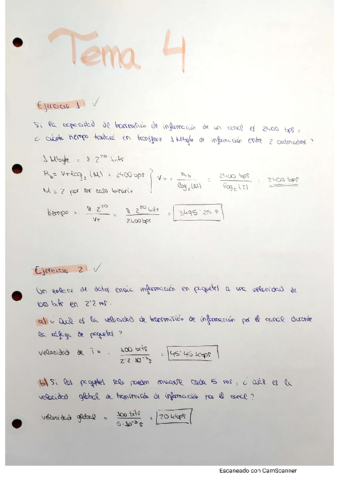 Tema 4
Ejercicio 1 ✓
Si la capacidad de transmisión de información de un canal es 2400 bps,
¿cuánto tiempo tardará en transferir 1 Mbyte de información entre 2 ordenadores?
1 Mbyte = 8·2²⁰ bits
Rb = Vt·log₂(M) = 2400 bps } Vt = Rb / log₂(M) = 2400 bps / log₂(2) = 2400 bps
M = 2 por ser caso binario
tiempo = 8·2²⁰ / Vt = 8·2²⁰ bits / 2400 bps = 3495'25 s
Ejercicio 2 ✓
Un enlace de datos envía información en paquetes a una velocidad de
100 bits en 2'2 ms.
a) ¿Cuál es la velocidad de transmisión de información por el canal durante
la ráfaga de paquetes?
velocidad de = 100 bits / 2'2·10⁻³ s = 45'45 kbps
b) Si los paquetes solo pueden enviarse cada 5 ms, ¿cuál es la
velocidad global de transmisión de información por el canal?
velocidad global = 100 bits / 5·10⁻³ s = 20 kbps
Escaneado con CamScanner